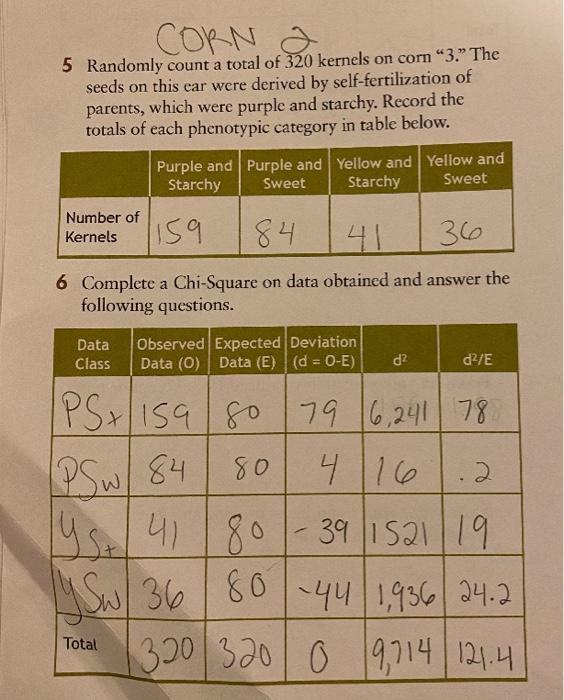 CORN 2
5 Randomly count a total of 320 kernels on corn “3.” The
seeds on this ear were derived by self-fertilization of
parents, which were purple and starchy. Record the
totals of each phenotypic category in table below.
Purple and Starchy Purple and Sweet Yellow and Starchy Yellow and Sweet
Number of Kernels 159 84 41 36
6 Complete a Chi-Square on data obtained and answer the
following questions.
Data Class Observed Data (O) Expected Data (E) Deviation (d = O-E) d² d²/E
PSt 159 80 79 6,241 78
PSw 84 80 4 16 .2
YSt 41 80 -39 1521 19
YSw 36 80 -44 1,936 24.2
Total 320 320 0 9,714 121.4